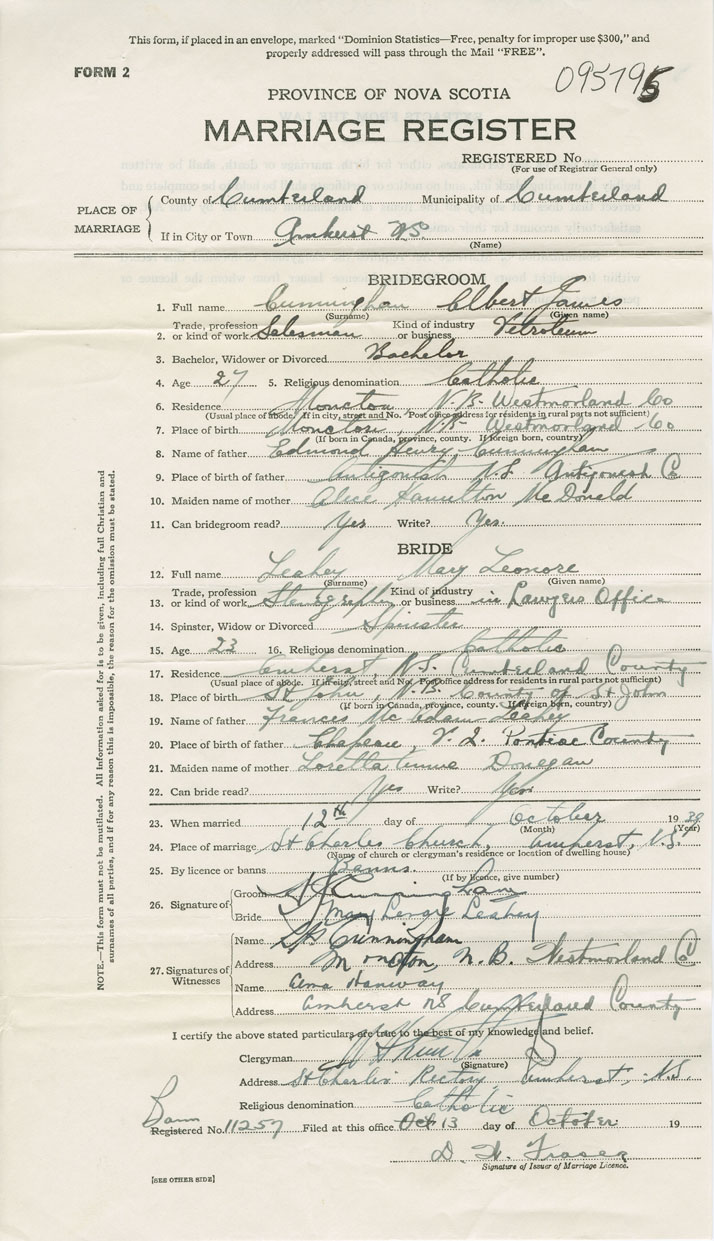 This form, if placed in an envelope, marked "Dominion Statistics—Free, penalty for improper use $300," and
properly addressed will pass through the Mail "FREE".
FORM 2
PROVINCE OF NOVA SCOTIA
MARRIAGE REGISTER
REGISTERED No.
(For use of Registrar General only)
PLACE OF MARRIAGE
County of Cumberland Municipality of Cumberland
If in City or Town Amherst N.S.
(Name)
BRIDEGROOM
1. Full name Cunningham Elbert James
(Surname) (Given name)
2. Trade, profession or kind of work Salesman Kind of industry or business Petroleum
3. Bachelor, Widower or Divorced Bachelor
4. Age 27 5. Religious denomination Catholic
6. Residence Moncton, N.B. Westmorland Co
(Usual place of abode. If in city, street and No. Post office address for residents in rural parts not sufficient)
7. Place of birth Moncton, N.B. Westmorland Co
(If born in Canada, province, county. If foreign born, country)
8. Name of father Edmond Henry Cunningham
9. Place of birth of father Antigonish N.S. Antigonish C
10. Maiden name of mother Alice Hamilton McDonald
11. Can bridegroom read? Yes Write? Yes.
BRIDE
12. Full name Leahey Mary Leonore
(Surname) (Given name)
13. Trade, profession or kind of work Kind of industry or business in Lawyers Office
14. Spinster, Widow or Divorced Spinster
15. Age 23 16. Religious denomination Catholic
17. Residence Amherst N.S. Cumberland County
(Usual place of abode. If in city, street and No. Post office address for residents in rural parts not sufficient)
18. Place of birth St John, N.B. County of St John
(If born in Canada, province, county. If foreign born, country)
19. Name of father Frances McAdam Leahey
20. Place of birth of father Chapeau, P.Q. Pontiac County
21. Maiden name of mother Loretta Donegan
22. Can bride read? Yes Write? Yes
23. When married 12th day of October 19
(Month) (Year)
24. Place of marriage St Charles Church, Amherst, N.S.
(Name of church or clergyman's residence or location of dwelling house)
25. By licence or banns Banns
(If by licence, give number)
26. Signature of
Groom Cunningham
Bride Mary Lenore Leahey
27. Signatures of Witnesses
Name Cunningham
Address Moncton, N.B. Westmorland C
Name Alma Haneway
Address Amherst NS Cumberland County
I certify the above stated particulars are true to the best of my knowledge and belief.
Clergyman
(Signature)
Address St Charles Rectory Amherst, N.S.
Religious denomination Catholic
Bann
Registered No. 11257 Filed at this office Oct 13 day of October 19
Fraser
Signature of Issuer of Marriage Licence.
[SEE OTHER SIDE]
NOTE.—This form must not be mutilated. All information asked for is to be given, including full Christian and
surnames of all parties, and if for any reason this is impossible, the reason for the omission must be stated.